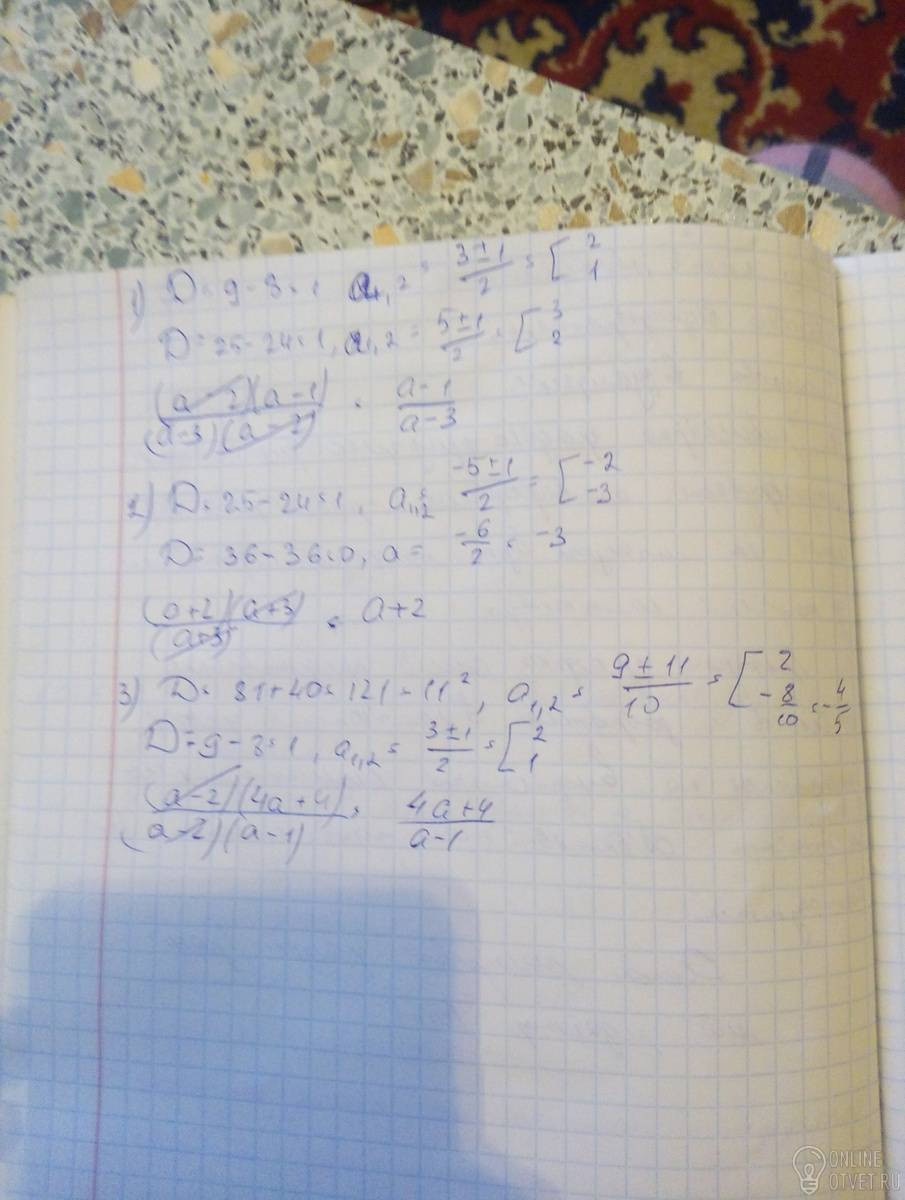 1) D = 9 - 8 = 1 a1,2 = 3±1/2 = [ 2 1
D = 25 - 24 = 1, a1,2 = 5±1/2 = [ 3 2
(a-2)(a-1)/(a-3)(a-2) = a-1/a-3
2) D = 25 - 24 = 1, a1,2 = -5±1/2 = [ -2 -3
D = 36 - 36 = 0, a = -6/2 = -3
(a+2)(a+3)/(a+3) = a+2
3) D = 81 + 40 = 121 = 11², a1,2 = 9±11/10 = [ 2 -8/10 = -4/5
D = 9 - 8 = 1, a1,2 = 3±1/2 = [ 2 1
(a-2)(4a+4)/(a-2)(a-1) = 4a+4/a-1
ONLINE
OTVET.RU